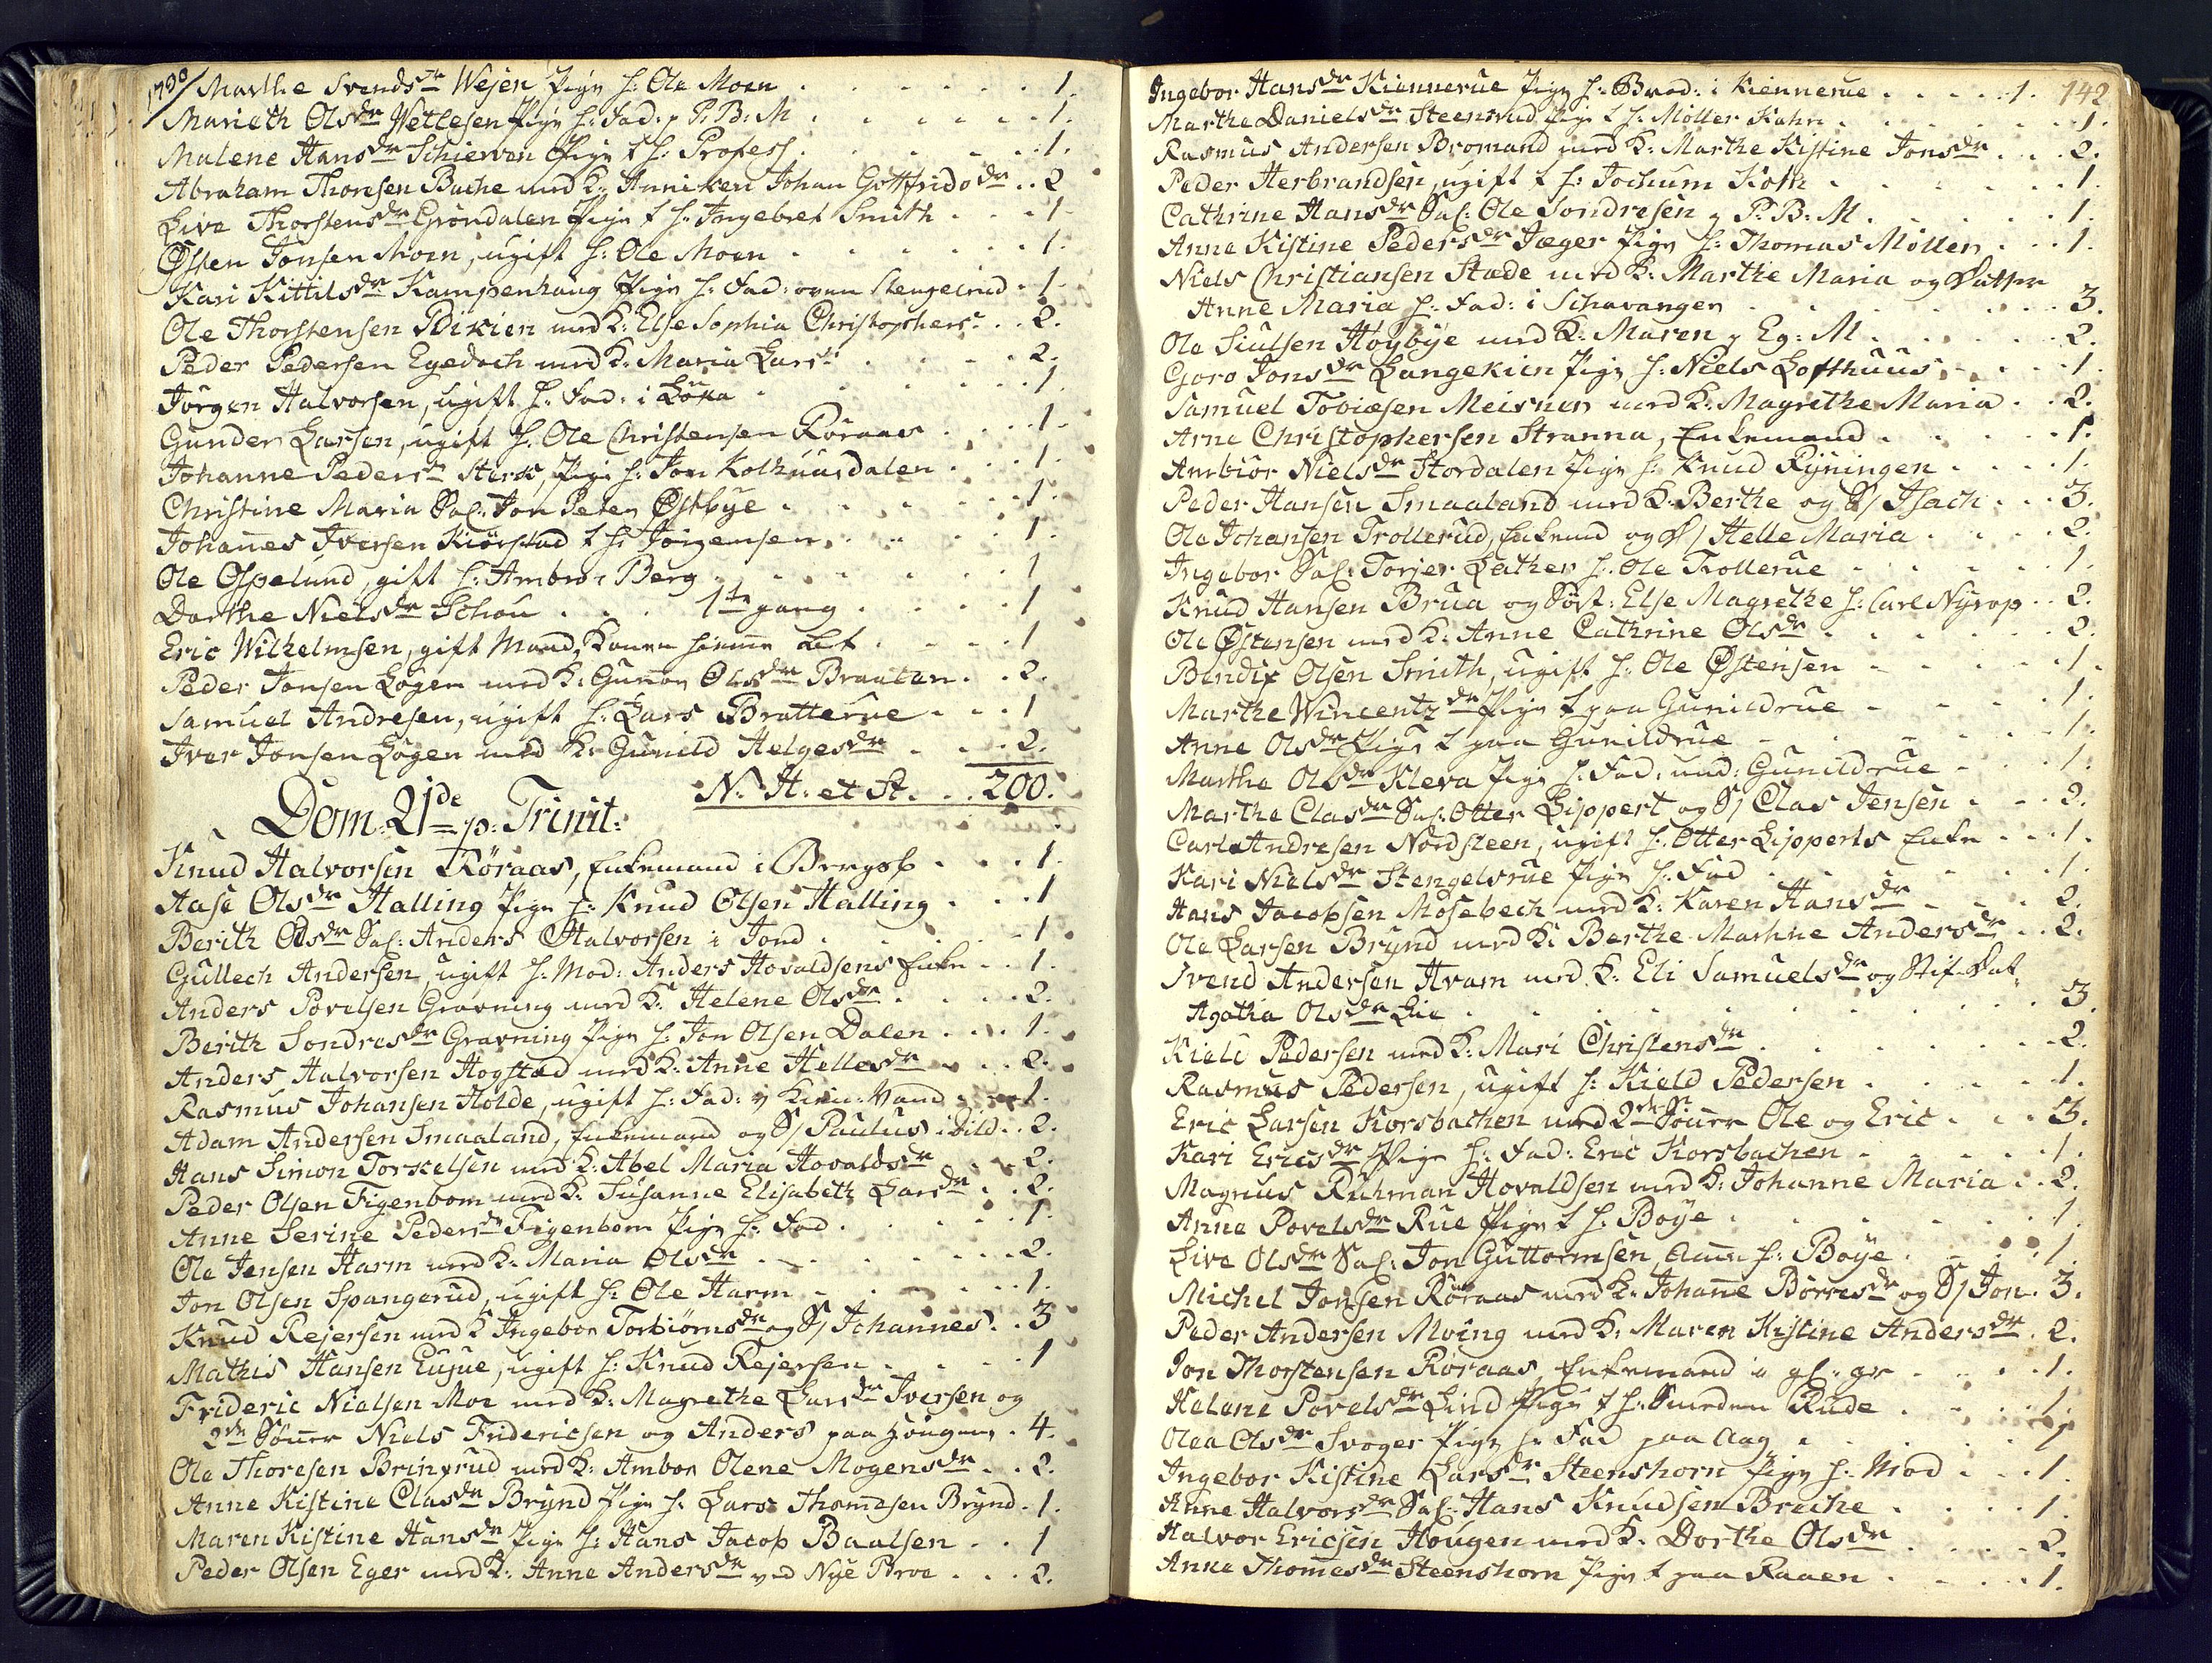 1790
Marthe Svendsdr Wejen Pige h: Ole Moen . . . 1.
Marieth Olsdr Wetlesen Pige h: Fad: P: B: M . . . 1.
Malene Hansdr Schierven Pige t h: Profess . . . 1.
Abraham Thoresen Bache med K: Anniken Johan Gottfridsdr . . 2
Live Thorstensdr Grøndalen Pige t h: Ingebret Smith . . . 1.
Østen Jonsen Moen, ugift h: Ole Moen . . . 1.
Kari Kittilsdr Kampenhaug Pige h: Fad: oven Stengelrud . 1.
Ole Thorstensen Bikien med K: Else Sophia Christophers: . . 2.
Peder Pedersen Egedoch med K: Maria Lars: . . . 2.
Jørgen Halvorsen, ugift h: Fad: i Løka . . . 1.
Gunder Larsen, ugift h: Ole Christensen Røraas . . . 1.
Johanne Pedersdr Sterk, Pige h: Jon Kolhuusdalen . . . 1.
Christine Maria Sal: Jon Peter Østbye . . . 1.
Johanes Iversen Kiørstad t h: Jørgensen . . . 1.
Ole Ospelund, gift h: Ambrø: Berg . . . 1
Dorthe Nielsdr Schou . . . 1te gang . . . 1
Eric Wilhelmsen, gift Mand, Konen hieme . . . 1
Peder Jonsen Løgen med K: Gunor Olsdr Braaten . . 2.
Samuel Andresen, ugift h: Lars Bratterue . . . 1
Iver Jonsen Løgen med K: Gunild Helgesdr . . . 2.
N. H: et St. . . 200.
Dom: 21de p: Trinit:
Knud Halvorsen Røraas, Enkemand i Bergst . . . 1.
Aase Olsdr Halling Pige h: Knud Olsen Halling . . . 1
Berith Olsdr Sal: Anders Halvorsen i Jond . . . 1
Gullech Andersen, ugift h: Mod: Anders Hovaldsens Enke . . 1.
Anders Povelsen Gravning med K: Helene Olsdr . . . 2.
Berith Sondresdr Gravning Pige h: Jon Olsen Dalen . . . 1.
Anders Halvorsen Hogstad med K: Anne Hellesdr . . . 2.
Rasmus Johansen Holde, ugift h: Fad: v Vand . . . 1.
Adam Andersen Smaaland, Enkemand og S/ Paulus i Sild . . 2.
Hans Simon Torkelsen med K: Abel Maria Hovaldsdr . . 2.
Peder Olsen Figenbom med K: Susanne Elisabeth Larsdr . . 2.
Anne Serine Pedersdr Figenbom Pige h: Fad . . . 1.
Ole Jensen Harm med K: Maria Olsdr . . . 2.
Jon Olsen Spangerud, ugift h: Ole Harm . . . 1.
Knud Rejersen med K Ingebor Torbiørnsdr og S/ Johannes . . 3
Mathis Hansen, ugift h: Knud Rejersen . . . 1
Frideric Nielsen Moe med K: Magrethe Larsdr Iversen og
2de Sønner Niels Fridericsen og Anders paa Hougen . 4.
Ole Thoresen Bringrud med K: Ambor Olene Mogensdr . . 2.
Anne Kistine Clasdr Brynd Pige h: Lars Thomesen Brynd . 1.
Maren Kistine Hansdr Pige h: Hans Jacob Baalsen . . 1
Peder Olsen Eger med K: Anne Andersdr ved Nye Broe . . . 2.
142
Ingebor Hansdr Kiennerue Pige h: Brod: i Kiennerue . . . 1.
Marthe Danielsdr Steenrud Pige t h: Møller Kahrs . . . 1.
Rasmus Andersen Bromand med K: Marthe Kistine Jonsdr . . . 2.
Peder Herbrandsen, ugift t h: Jochum Koth . . . 1.
Cathrine Hansdr Sal: Ole Sondresen P: B: M . . . 1.
Anne Kistine Pedersdr Jæger Pige h: Thomas Møller . . . 1.
Niels Christiansen Stade med K: Marthe Maria og Datter
Anne Maria h: Fad: i Schavangen . . . 3.
Ole Siulsen Høybye med K: Maren Eg: M . . . 2.
Goro Jonsdr Langekien Pige h: Niels Lofthuus . . . 1.
Samuel Tobiæsen Meisner med K: Magrethe Maria . . 2.
Arne Christophersen Stranna, Enkemand . . . 1.
Ambiør Nielsdr Stordalen Pige h: Knud Ryningen . . . 1.
Peder Hansen Smaaland med K: Berthe og S/ Isach . . . 3.
Ole Johansen Trollerud, Enkemd og D/ Helle Maria . . . 2.
Ingebor Sal: Torjer Lather h: Ole Trollerue . . . 1.
Knud Hansen Brua og Søst: Else Magrethe h: Carl Nyrop . . 2.
Ole Østensen med K: Anne Cathrine Olsdr . . . 2.
Bendix Olsen Smith, ugift h: Ole Østensen . . . 1.
Marthe Wincentzdr Pige t paa Gunildrue . . . 1.
Anne Olsdr Pige t paa Gunildrue . . . 1.
Marthe Olsdr Kleva Pige h: Fad: und: Gunildrue . . . 1.
Marthe Clasdr Sal: Otter Lippert og S/ Clas Jensen . . . 2.
Carl Andresen Nordsteen, ugift h: Otter Lipperts Enke . . . 1.
Kari Nielsdr Stengelsrue Pige h: Fad . . . 1.
Hans Jacobsen Mosebech med K: Karen Hansdr . . . 2.
Ole Larsen Brynd med K: Berthe Marhne Andersdr . . 2.
Svend Andersen Hvam med K: Eli Samuelsdr og Stif-Dat
Agatha Olsdr Lie . . . 3.
Kield Pedersen med K: Mari Christensdr . . . 2.
Rasmus Pedersen, ugift h: Kield Pedersen . . . 1.
Eric Larsen Korsbachen med 2de Sønner Ole og Eric . . . 3.
Kari Ericsdr Pige h: Fad: Eric Korsbachen . . . 1.
Magnus Ruhman Hovaldsen med K: Johanne Maria . . 2.
Anne Povelsdr Rue Pige t h: Boye . . . 1.
Live Olsdr Sal: Jon Guttormsen, h: Boye . . . 1.
Michel Jonsen Røraas med K: Johane Børresdr og S/ Jon . 3.
Peder Andersen Moing med K: Maren Kistine Andersdr . 2.
Jon Thorstensen Røraas, Enkemand i gl: gr . . . 1.
Helene Povelsdr Lind Pige t h: Smeden Rude . . . 1.
Olea Olsdr Svoger Pige h: Fad paa Aag . . . 1
Ingebor Kistine Larsdr Steenshorn Pige h: Mod . . . 1.
Anne Halvorsdr Sal: Hans Knudsen Breche . . . 1.
Halvor Ericsen Hougen med K: Dorthe Olsdr . . . 2.
Anne Thomesdr Steenshorn Pige t paa Raaen . . . 1.